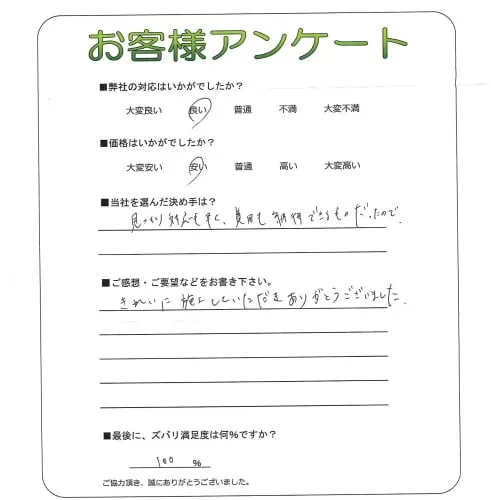 お客様アンケート
■弊社の対応はいかがでしたか？
大変良い 良い 普通 不満 大変不満
■価格はいかがでしたか？
大変安い 安い 普通 高い 大変高い
■当社を選んだ決め手は？
見つもり対応も早く、費用も納得できるものだったので
■ご感想・ご要望などをお書き下さい。
きれいに施工していただきありがとうございました。
■最後に、ズバリ満足度は何％ですか？
100 %
ご協力頂き、誠にありがとうございました。